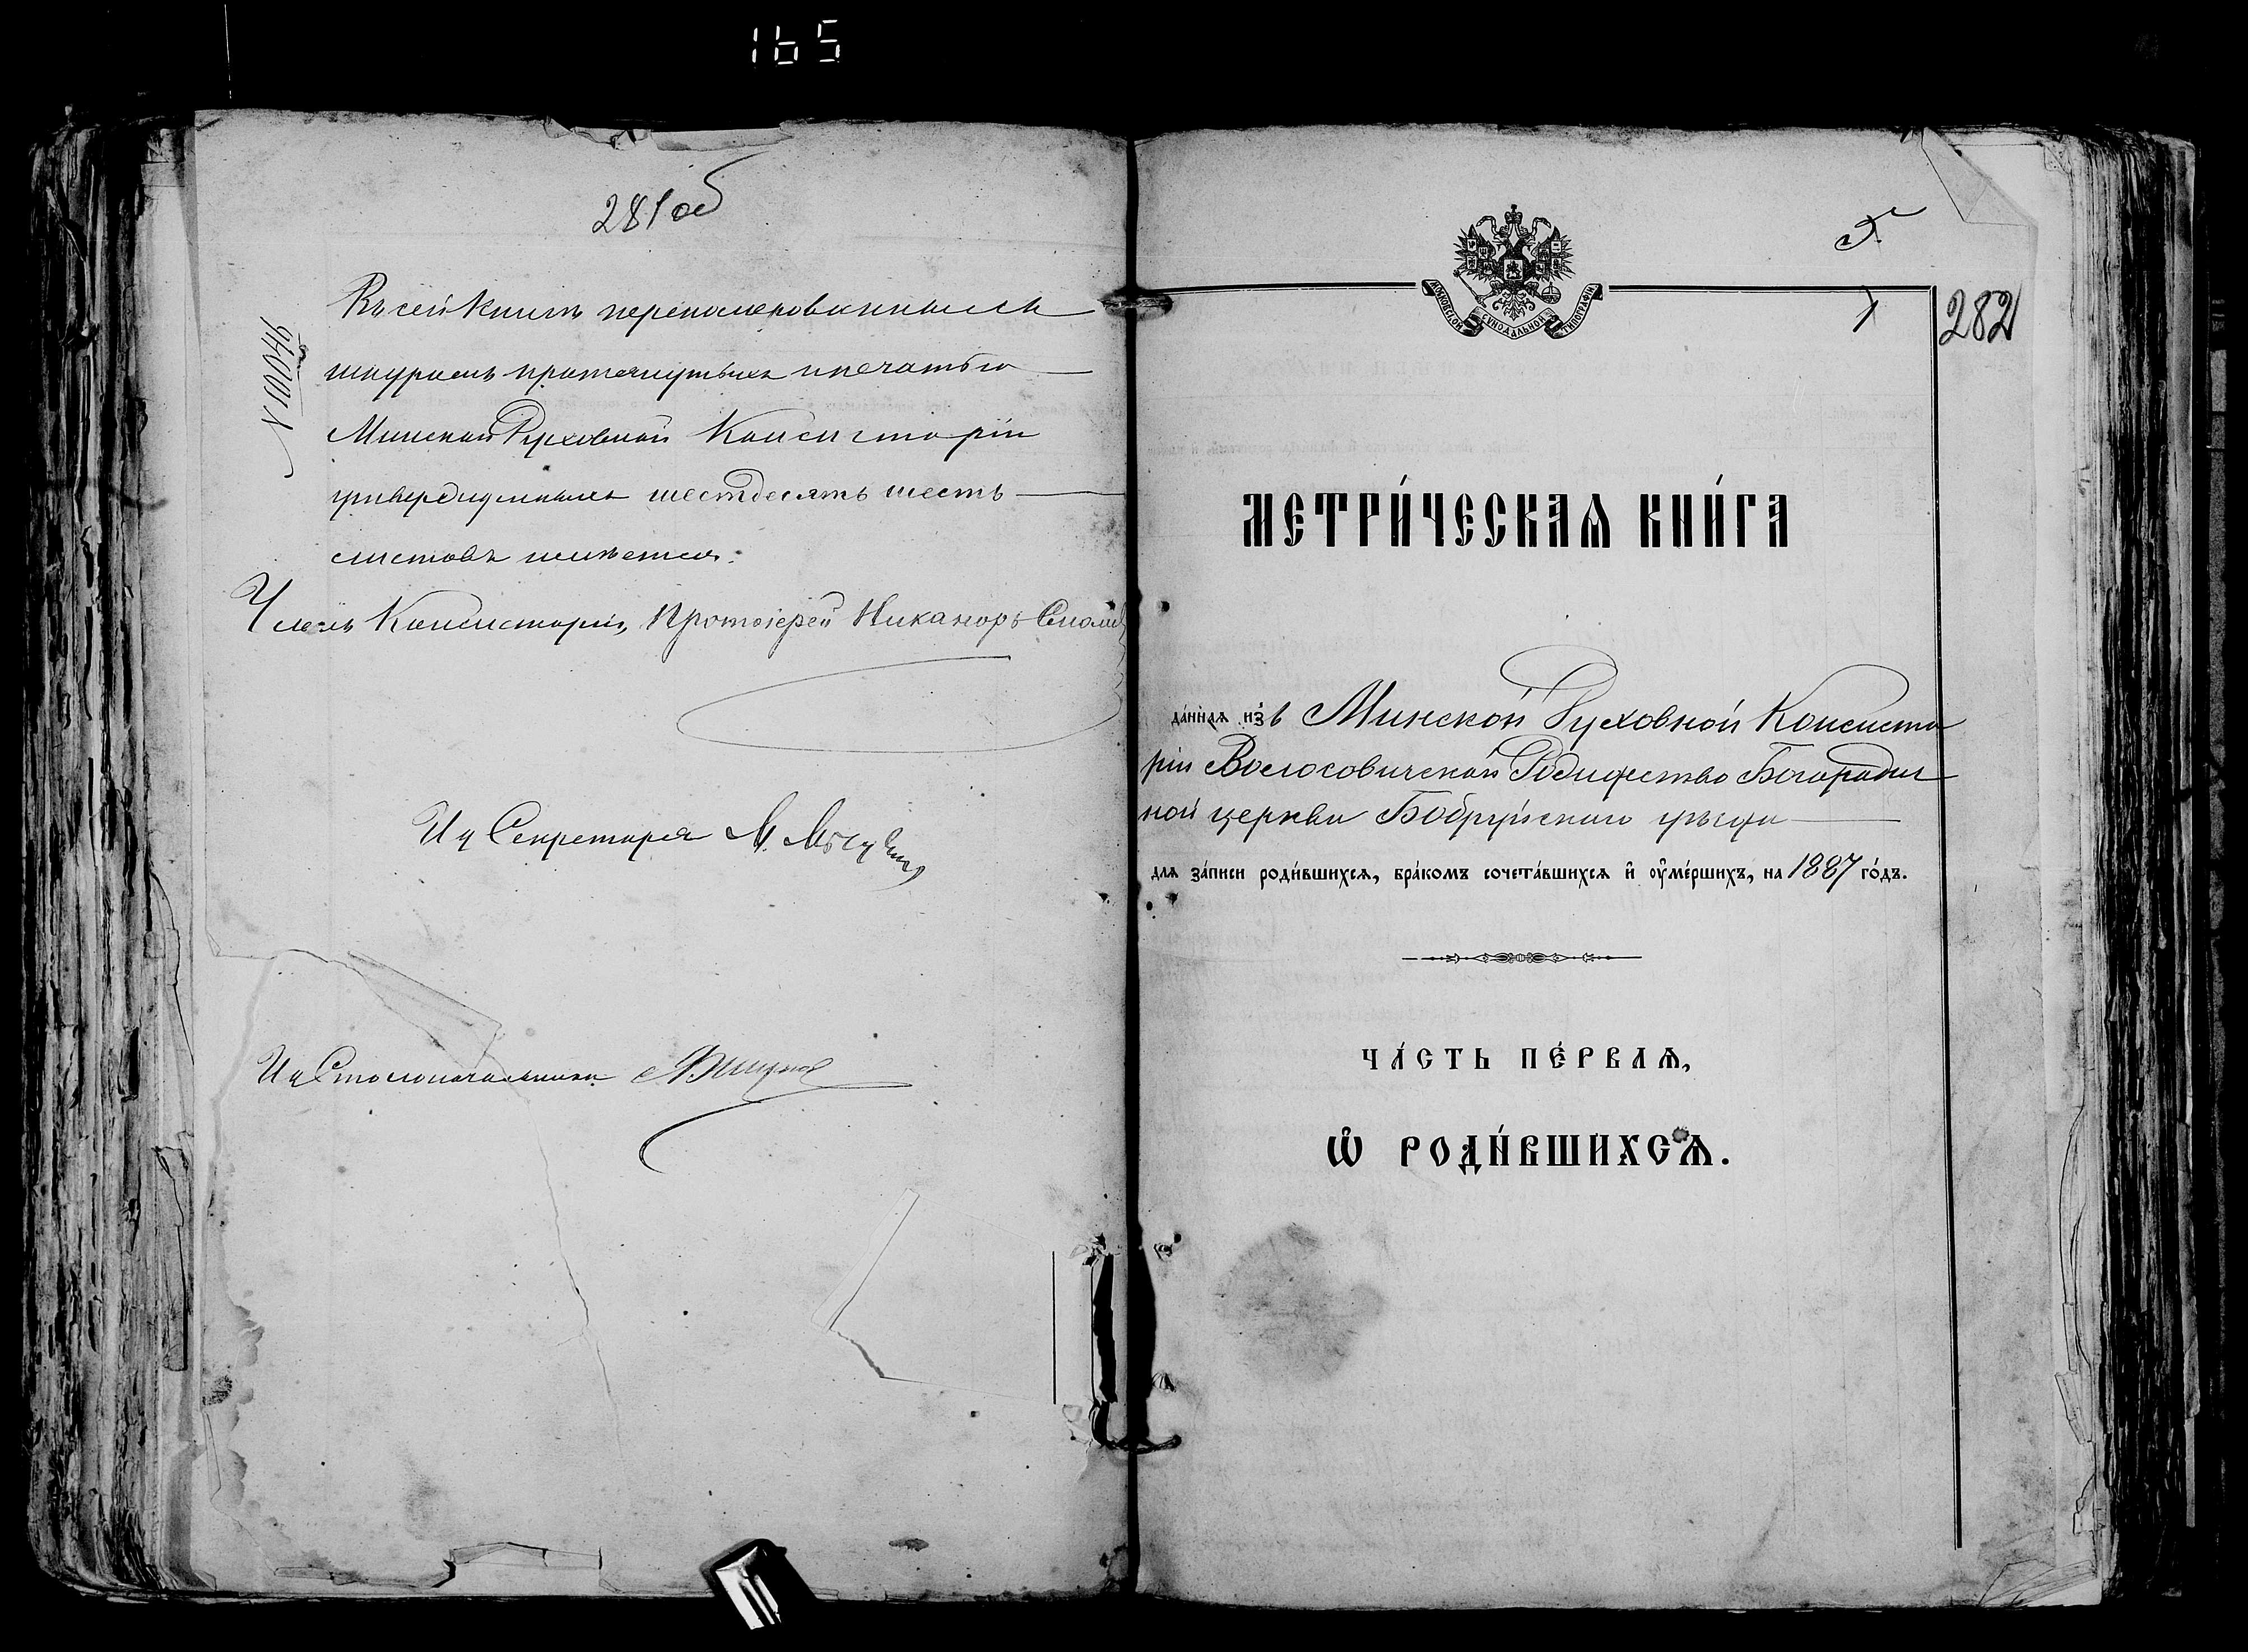 165
281об
Въ сей книгѣ перенумерованныхъ
шнуромъ протянутыхъ и печатью
Минской Духовной Консисторіи
утвержденныхъ шестдесятъ шесть
листовъ имѣется.
Членъ Консисторіи, Протоіерей Никаноръ
И д Секретаря М.
И д Столоначальника
282
МОСКОВСКОЙ СѴНОДАЛЬНОЙ ТИПОГРАФІИ
МЕТРИ́ЧЕСКАѦ КНИ́ГА
да́ннаѧ из̾ в Минской Духовной Консисто
ріи Волосовичской Рождество Богородич
ной церкви Бобруйскаго уѣзда
длѧ за́писи роди́вшихсѧ, бра́комъ сочета́вшихсѧ и҆ ᲂу҆ме́ршихъ, на 1887 го́дъ.
ЧА́СТЬ ПЕ́РВАѦ,
Ѽ РОДИ́ВШИХСѦ.